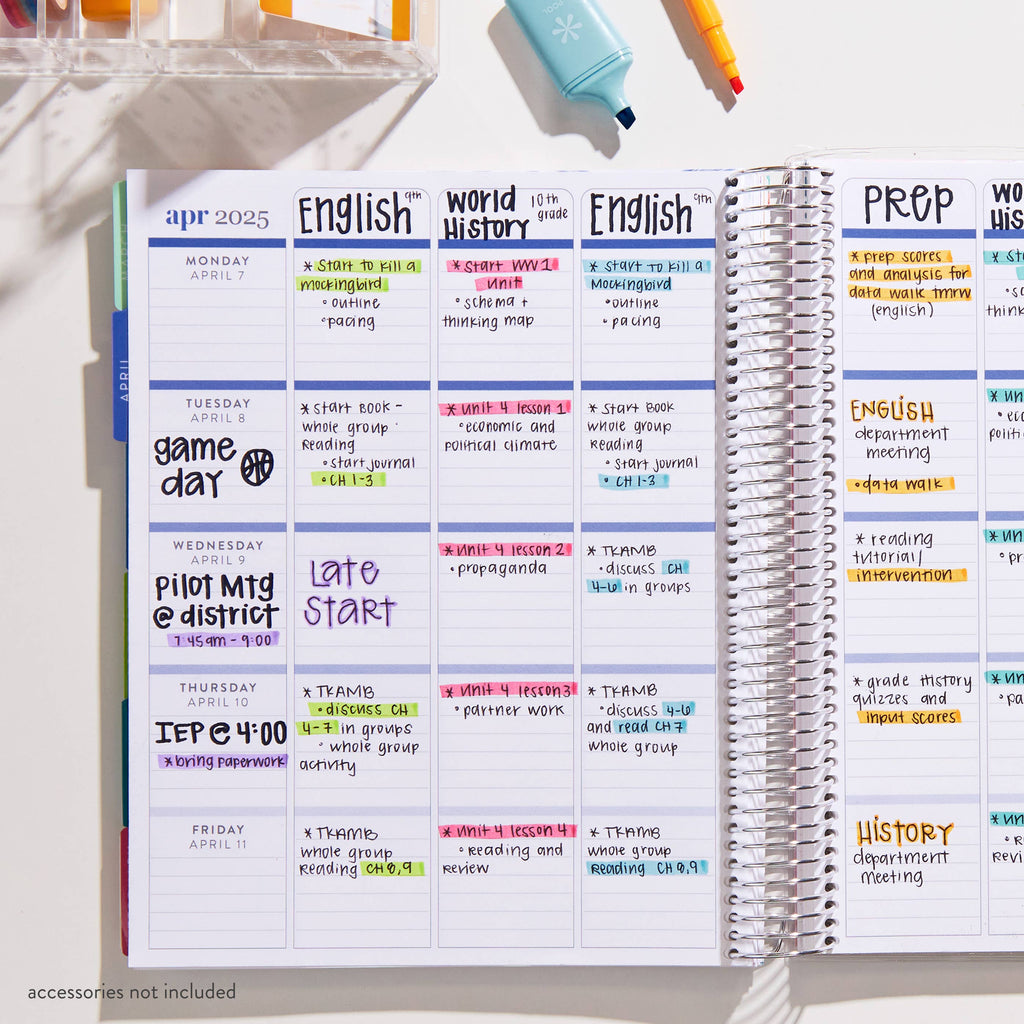 POOL
MARCH
APRIL
apr 2025
English 9th
World History 10th grade
English 9th
PREP
MONDAY
APRIL 7
* Start to kill a
mockingbird
• outline
• pacing
* Start WW1
unit
• schema +
thinking map
* Start to kill a
Mockingbird
• outline
• pacing
* prep scores
and analysis for
data walk tmrw
(english)
TUESDAY
APRIL 8
game
day
* Start BOOK -
whole group
Reading
• start journal
• CH 1-3
* Unit 4 lesson 1
• economic and
political climate
* Start BOOK
whole group
Reading
• Start journal
• CH 1-3
ENGLISH
department
meeting
• data walk
WEDNESDAY
APRIL 9
Pilot Mtg
@ district
7:45am - 9:00
Late
Start
* Unit 4 lesson 2
• propaganda
* TKAMB
• discuss CH
4-6 in groups
* reading
tutorial/
intervention
THURSDAY
APRIL 10
IEP @ 4:00
* bring paperwork
* TKAMB
• discuss CH
4-7 in groups
• whole group
activity
* Unit 4 lesson 3
• partner work
* TKAMB
• discuss 4-6
and read CH 7
whole group
* grade History
quizzes and
input scores
FRIDAY
APRIL 11
* TKAMB
whole group
Reading CH 8,9
* Unit 4 lesson 4
• reading and
review
* TKAMB
whole group
Reading CH 8,9
HISTORY
department
meeting
accessories not included